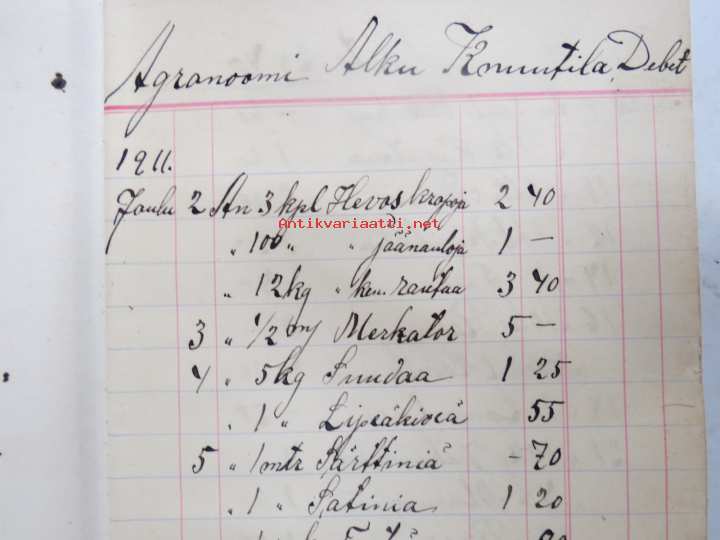 Agronoomi Alku Knuutila, Debet
1911.
Joulu 2 An 3 kpl Hevoskropoja 2 40
Antikvariaatti.net
" 100 " " jäänauloja 1 —
" 12 kg " ken. rautaa 3 40
3 " 1/2 Merkator 5 —
4 " 5 kg Suudaa 1 25
" 1 " Lipeäkiveä 55
5 " 1 mtr Särttiniä - 70
" 1 " Satinia 1 20